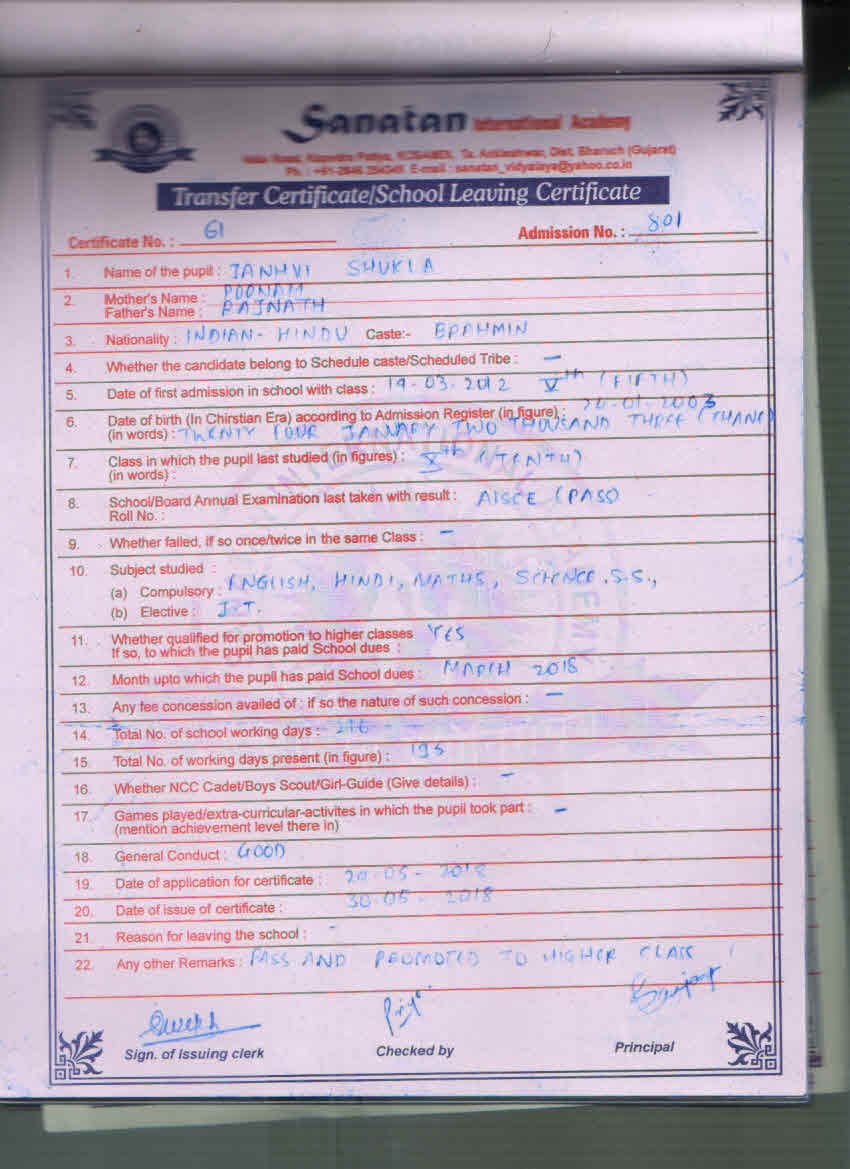 Sanatan International Academy
Ta. Ankleshwar, Dist. Bharuch (Gujarat)
E-mail : sanatan_vidyalaya@yahoo.co.in
Transfer Certificate/School Leaving Certificate
Certificate No. : 61 Admission No. : 801
1. Name of the pupil : JANHVI SHUKLA
2. Mother's Name : POONAM
Father's Name : RAJNATH
3. Nationality : INDIAN - HINDU Caste:- BRAHMIN
4. Whether the candidate belong to Schedule caste/Scheduled Tribe : —
5. Date of first admission in school with class : 19-03-2012 Vth (FIFTH)
6. Date of birth (In Chirstian Era) according to Admission Register (in figure) : 24-01-2003
(in words) : TWENTY FOUR JANUARY TWO THOUSAND THREE
7. Class in which the pupil last studied (in figures) : Xth (TENTH)
(in words) :
8. School/Board Annual Examination last taken with result : AISCE (PASS)
Roll No. :
9. Whether failed, if so once/twice in the same Class : —
10. Subject studied :
(a) Compulsory : ENGLISH, HINDI, MATHS, SCIENCE, S.S.,
(b) Elective : I.T.
11. Whether qualified for promotion to higher classes YES
If so, to which the pupil has paid School dues :
12. Month upto which the pupil has paid School dues : MARCH 2018
13. Any fee concession availed of : if so the nature of such concession : —
14. Total No. of school working days : 216
15. Total No. of working days present (in figure) : 195
16. Whether NCC Cadet/Boys Scout/Girl-Guide (Give details) : —
17. Games played/extra-curricular-activites in which the pupil took part : —
(mention achievement level there in)
18. General Conduct : GOOD
19. Date of application for certificate : 20-05-2018
20. Date of issue of certificate : 30-05-2018
21. Reason for leaving the school : -
22. Any other Remarks : PASS AND PROMOTED TO HIGHER CLASS
Sign. of Issuing clerk Checked by Principal